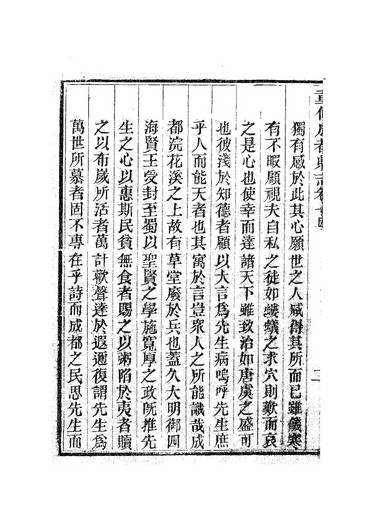 重修成都縣志卷
獨有感於此其心願世之人咸得其所而已雖饑寒
有不暇顧視夫自私之徒如螻蟻之求穴則歎而哀
之是心也使幸而達諸天下雖致治如唐虞之盛可
也彼淺於知德者顧以大言爲先生病嗚呼先生庶
乎人而能天者也其寓於言豈衆人之所能識哉成
都浣花溪之上故有草堂廢於兵也蓋久大明御四
海賢王受封至蜀以聖賢之學施寬厚之政旣推先
生之心以惠斯民貧無食者賜之以粥陷於夷者贖
之以布歲所活者萬計歡聲達於遐邇復謂先生爲
萬世所慕者固不專在乎詩而成都之民思先生而